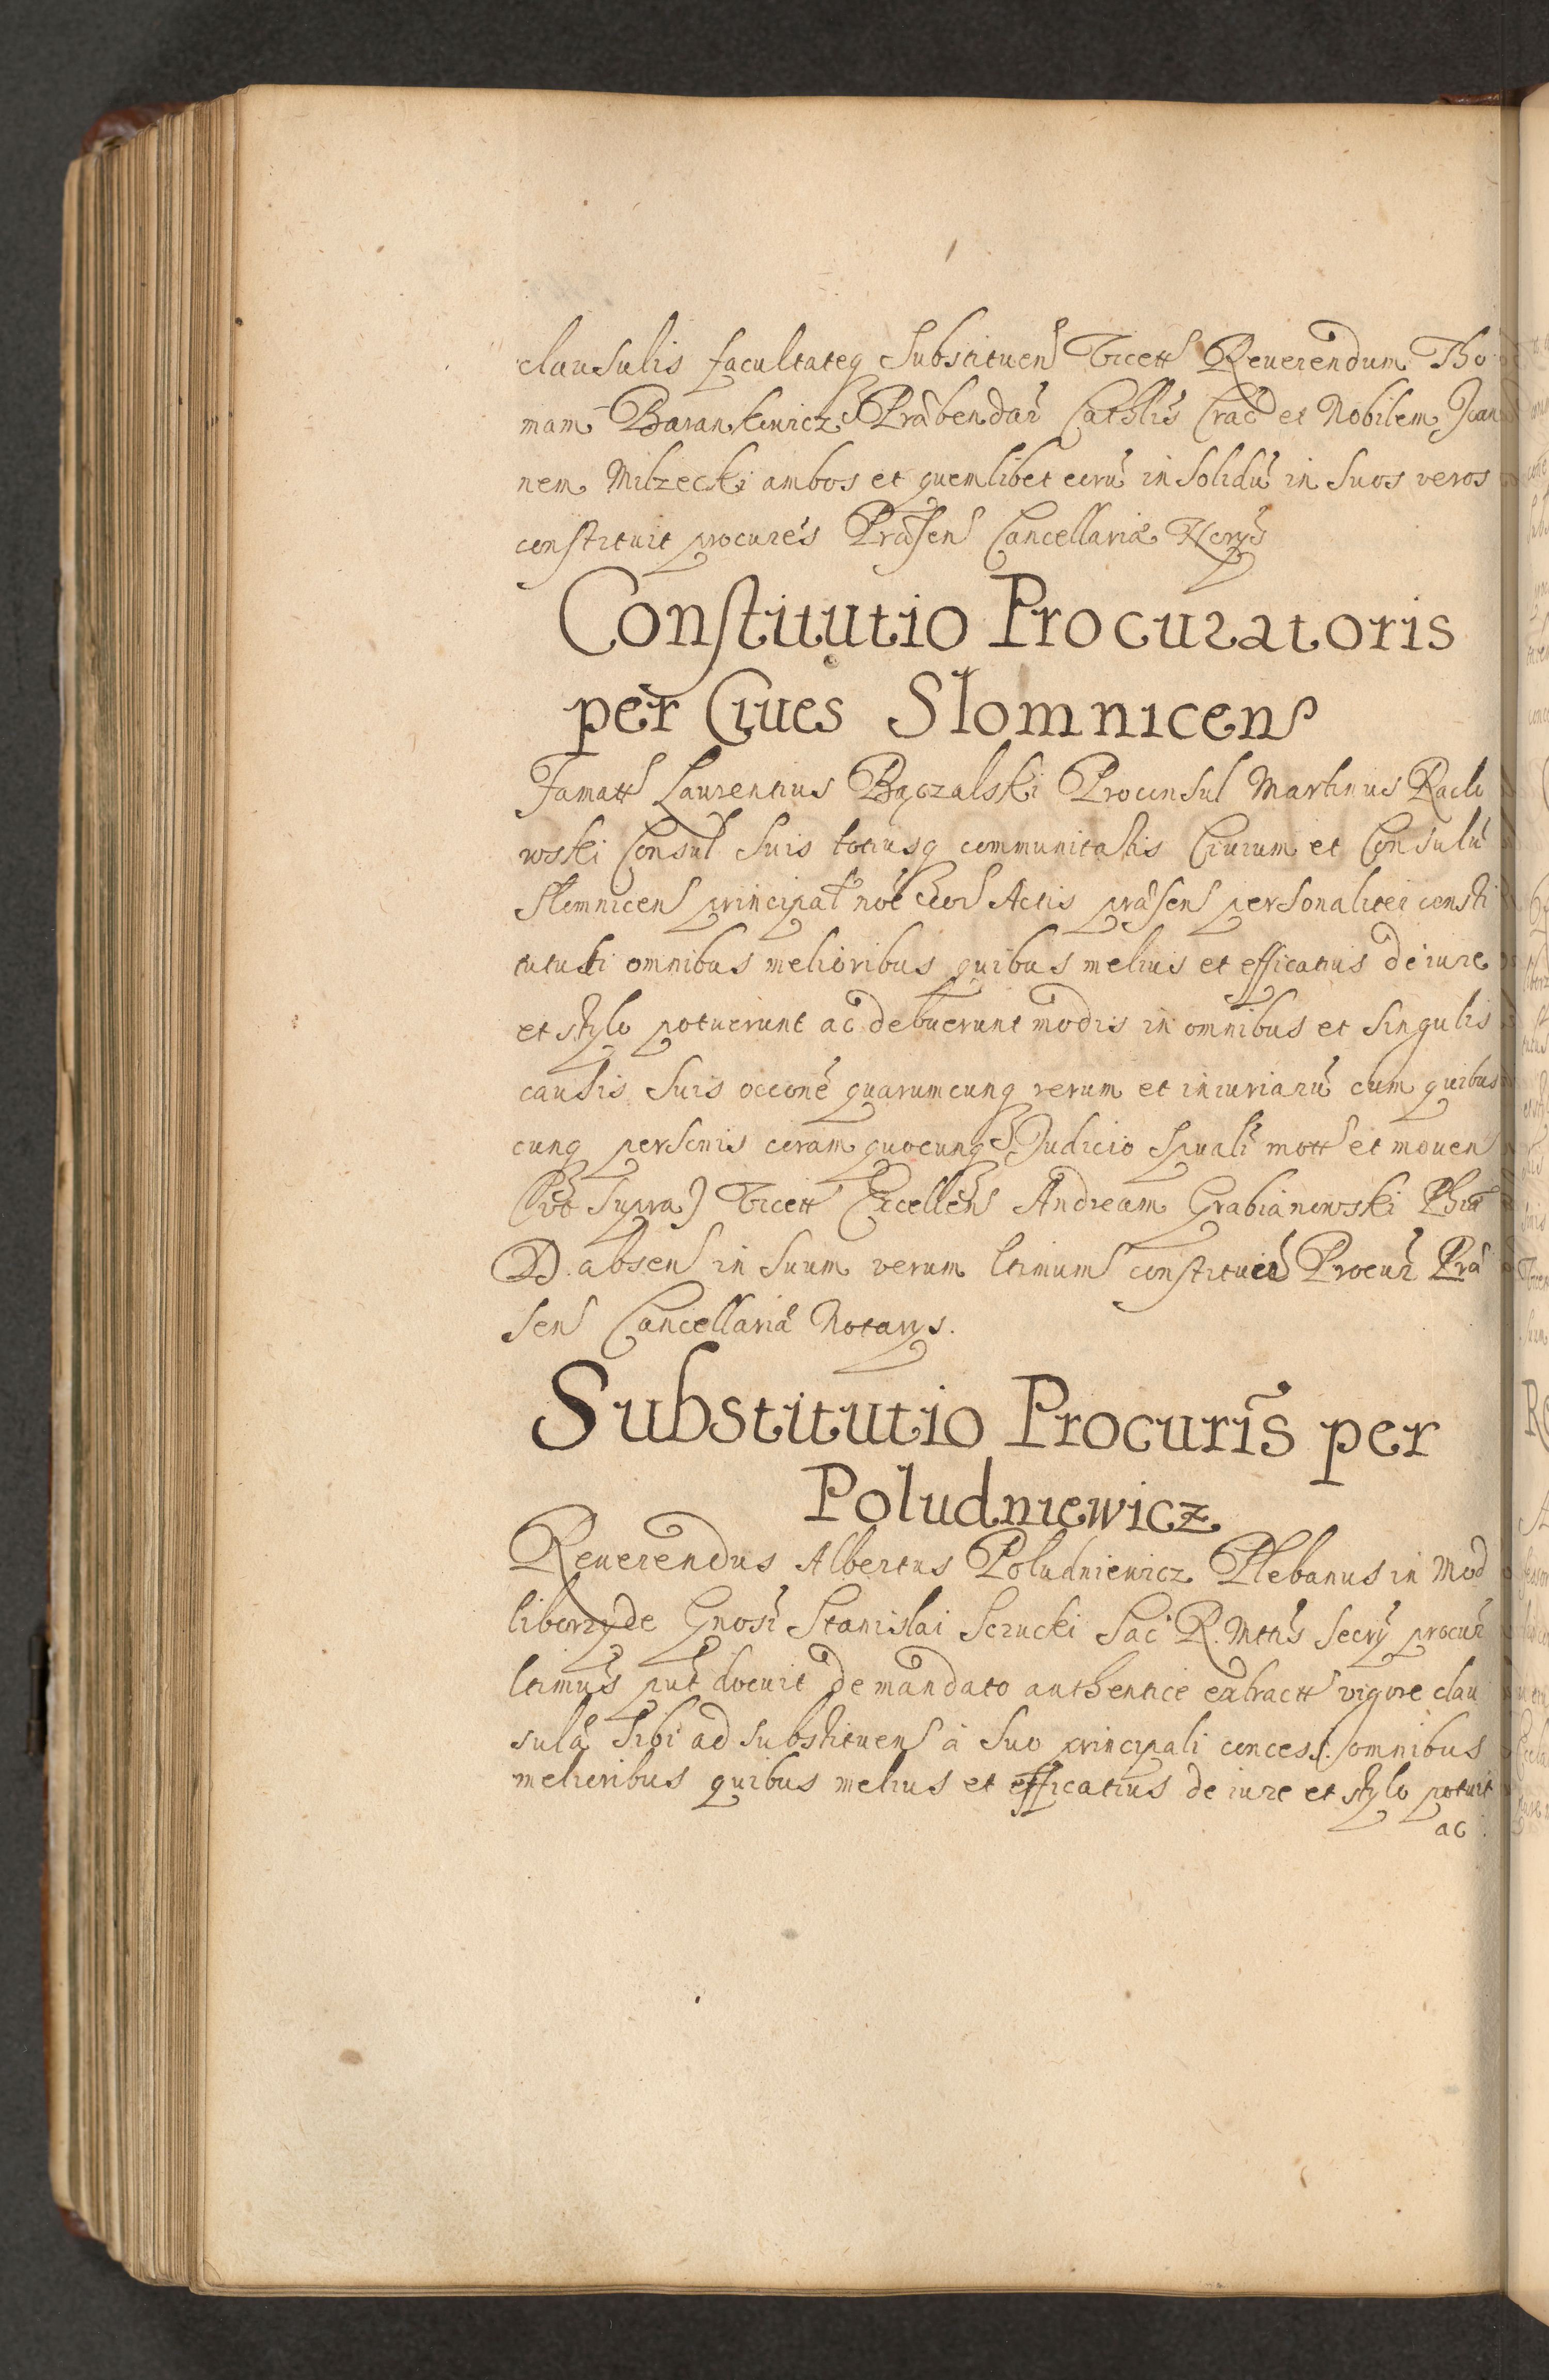 clausulis facultateq Substituen Vicett Reuerendum Tho
mam Barankowicz Præbendar Cathlis Crac et Nobilem Joan
nem Milzecki ambos et quemlibet eorū in solidū in suos veros
constituit procures Præsen Cancellariæ Norys
Constitutio Procuratoris
per Ciues Slomnicen
Famatt Laurentius Bączalski Proconsul Martinus Raclo
wski Consul suis totiusq communitatis Ciuium et Consulū
Slomnicen principal noē coor Actis præsen personaliter consti
tututi omnibus melioribus quibus melius et efficatius de iure
et stylo potuerunt ac debuerunt modis in omnibus et singulis
causis suis occone quarumcunq rerum et iniuriarū cum quibus
cunq personis coram quocunq Judicio spuali mott et mouen
(ut supra) Vicett Excellen Andream Grabianowski Phiæ
D. absen in suum verum ltimum constituer Procur Præ
sen Cancellariæ Notarys.
Substitutio Procuris per
Poludniewicz
Reuerendus Albertus Poludniewicz Plebanus in Mod
liborzyde Gnosi Stanislai Scrucki Sac R. Mttis Secry procur
ltimus put docuit de mandato authentice extractt vigore clau
sulæ sibi ad substituen à suo principali concess. omnibus
melioribus quibus melius et efficatius de iure et stylo potuit
ac